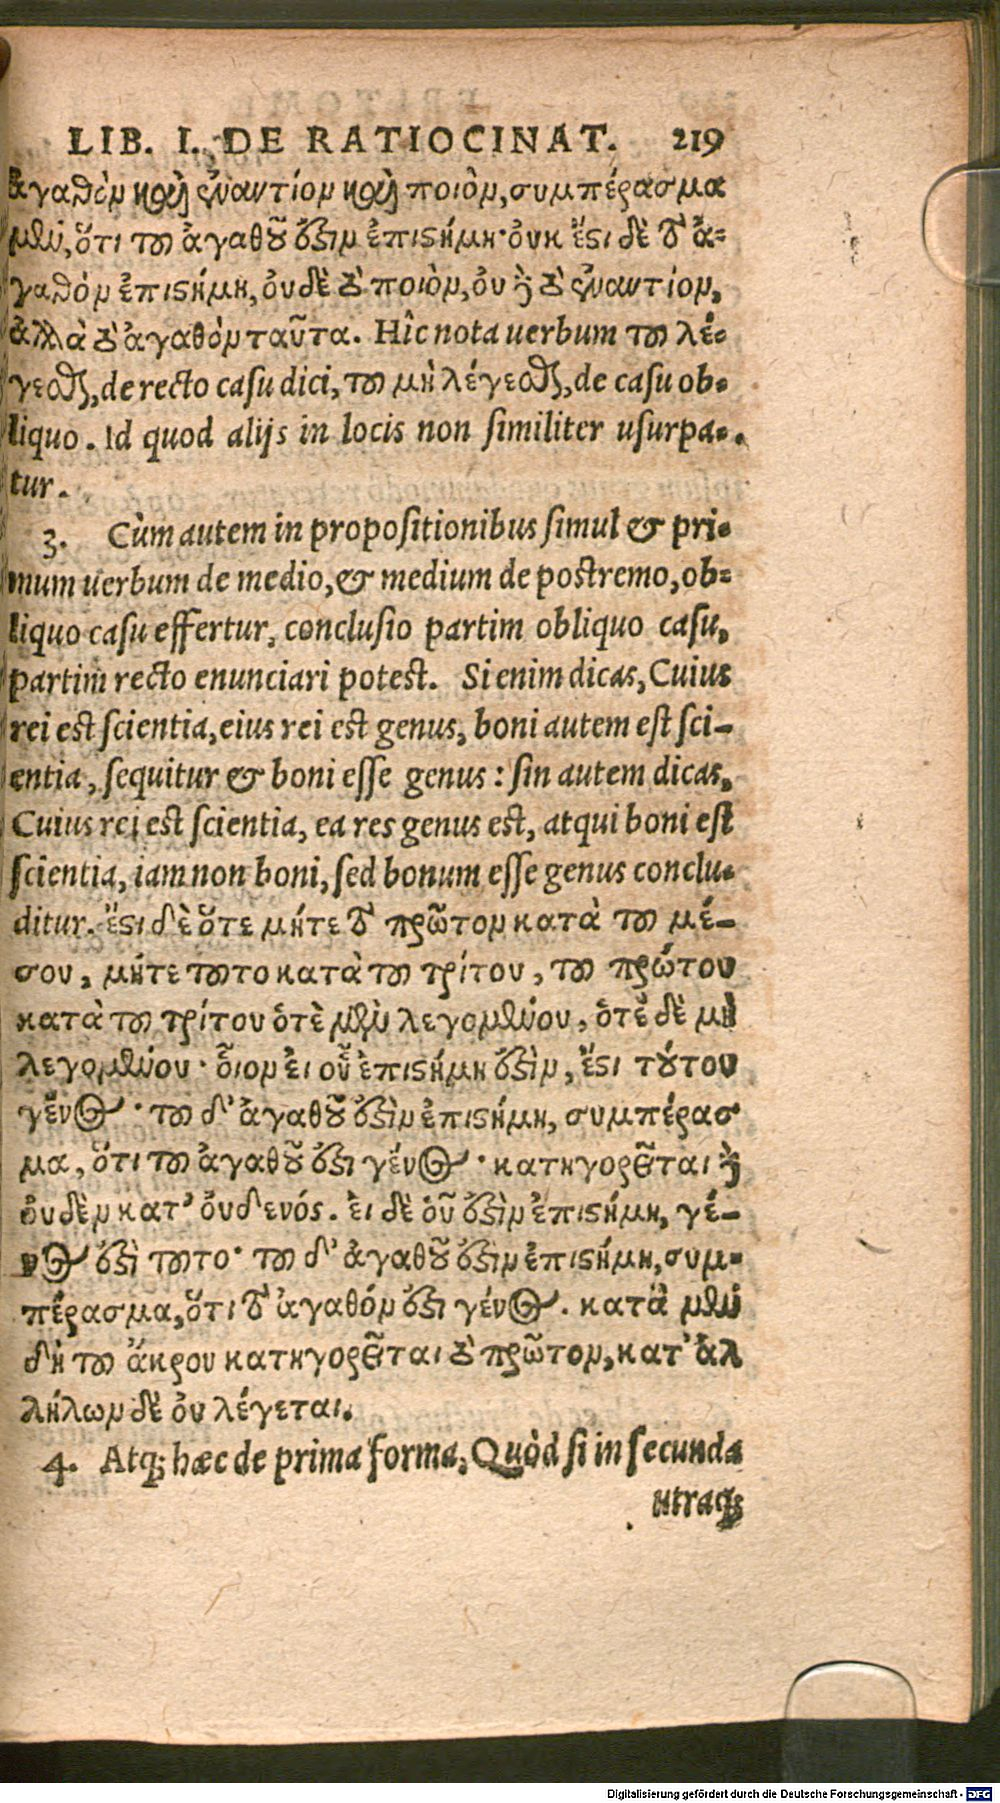 LIB. I. DE RATIOCINAT. 219
ἀγαθὸν καὶ ἐναντίον καὶ ποιὸν, συμπέρασμα
μὲν, ὅτι τοῦ ἀγαθοῦ ἐστιν ἐπιστήμη· ὀυκ ἔστι δὲ τὸ ἀ-
γαθὸν ἐπιστήμη, ὀυδὲ τὸ ποιὸν, ὀυδὲ τὸ ἐναντίον,
ἀλλὰ τὸ ἀγαθὸν ταῦτα. Hîc nota uerbum τοῦ λέ-
γεσθαι, de recto casu dici, τοῦ μὴ λέγεσθαι, de casu ob-
liquo. Id quod alijs in locis non similiter usurpa-
tur.
3. Cùm autem in propositionibus simul & pri-
mum uerbum de medio, & medium de postremo, ob-
liquo casu effertur, conclusio partim obliquo casu,
partim recto enunciari potest. Si enim dicas, Cuius
rei est scientia, eius rei est genus, boni autem est sci-
entia, sequitur & boni esse genus: sin autem dicas,
Cuius rei est scientia, ea res genus est, atqui boni est
scientia, iam non boni, sed bonum esse genus conclu-
ditur. ἔστι δὲ ὅτε μήτε τὸ πρῶτον κατὰ τοῦ μέ-
σου, μήτε τοῦτο κατὰ τοῦ τρίτου, τοῦ πρώτου
κατὰ τοῦ τρίτου ὁτὲ μὲν λεγομένου, ὁτὲ δὲ μὴ
λεγομένου· ὃιον ἐι οὗ ἐπιστήμη ἐστὶν, ἔστι τούτου
γένος· τοῦ δ' ἀγαθοῦ ἐστὶν ἐπιστήμη, συμπέρασ
μα, ὅτι τοῦ ἀγαθοῦ ἐστι γένος· κατηγορεῖται δὲ
ὀυδὲν κατ' ὀυδενός. ἐι δὲ ὁῦ ἐστὶν ἐπιστήμη, γέ-
νος ἐστὶ τοῦτο· τοῦ δ' ἀγαθοῦ ἐστιν ἐπιστήμη, συμ-
πέρασμα, ὅτι τὸ ἀγαθόν ἐστι γένος. κατὰ μὲν
δὴ τοῦ ἄκρου κατηγορεῖται τὸ πρῶτον, κατ' ἀλ
λήλων δὲ ὀυ λέγεται.
4. Atq; hæc de prima forma, Quòd si in secunda
utraq;
Digitalisierung gefördert durch die Deutsche Forschungsgemeinschaft - DFG